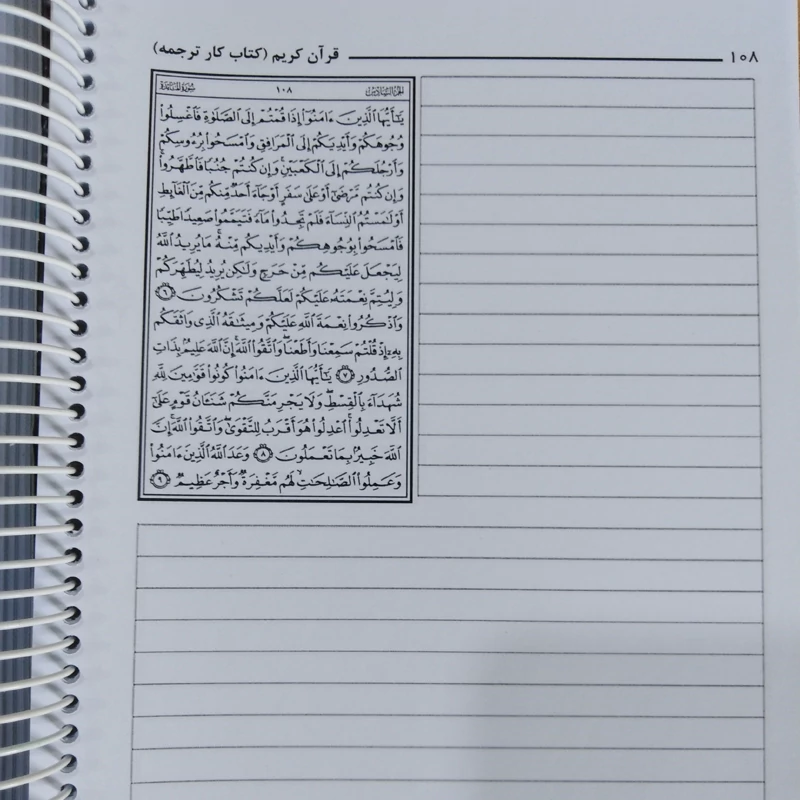 ۱۰۸ قرآن کریم (کتاب کار ترجمه)
الجزء السادس ١٠٨ سورة المائدة
يَٰٓأَيُّهَا ٱلَّذِينَ ءَامَنُوٓا۟ إِذَا قُمْتُمْ إِلَى ٱلصَّلَوٰةِ فَٱغْسِلُوا۟
وُجُوهَكُمْ وَأَيْدِيَكُمْ إِلَى ٱلْمَرَافِقِ وَٱمْسَحُوا۟ بِرُءُوسِكُمْ
وَأَرْجُلَكُمْ إِلَى ٱلْكَعْبَيْنِ ۚ وَإِن كُنتُمْ جُنُبًا فَٱطَّهَّرُوا۟ ۚ
وَإِن كُنتُم مَّرْضَىٰٓ أَوْ عَلَىٰ سَفَرٍ أَوْ جَآءَ أَحَدٌ مِّنكُم مِّنَ ٱلْغَآئِطِ
أَوْ لَٰمَسْتُمُ ٱلنِّسَآءَ فَلَمْ تَجِدُوا۟ مَآءً فَتَيَمَّمُوا۟ صَعِيدًا طَيِّبًا
فَٱمْسَحُوا۟ بِوُجُوهِكُمْ وَأَيْدِيكُم مِّنْهُ ۚ مَا يُرِيدُ ٱللَّهُ
لِيَجْعَلَ عَلَيْكُم مِّنْ حَرَجٍ وَلَٰكِن يُرِيدُ لِيُطَهِّرَكُمْ
وَلِيُتِمَّ نِعْمَتَهُۥ عَلَيْكُمْ لَعَلَّكُمْ تَشْكُرُونَ ٦
وَٱذْكُرُوا۟ نِعْمَةَ ٱللَّهِ عَلَيْكُمْ وَمِيثَٰقَهُ ٱلَّذِى وَاثَقَكُم
بِهِۦٓ إِذْ قُلْتُمْ سَمِعْنَا وَأَطَعْنَا ۖ وَٱتَّقُوا۟ ٱللَّهَ ۚ إِنَّ ٱللَّهَ عَلِيمٌۢ بِذَاتِ
ٱلصُّدُورِ ٧ يَٰٓأَيُّهَا ٱلَّذِينَ ءَامَنُوا۟ كُونُوا۟ قَوَّٰمِينَ لِلَّهِ
شُهَدَآءَ بِٱلْقِسْطِ ۖ وَلَا يَجْرِمَنَّكُمْ شَنَـَٔانُ قَوْمٍ عَلَىٰٓ
أَلَّا تَعْدِلُوا۟ ۚ ٱعْدِلُوا۟ هُوَ أَقْرَبُ لِلتَّقْوَىٰ ۖ وَٱتَّقُوا۟ ٱللَّهَ ۚ إِنَّ
ٱللَّهَ خَبِيرٌۢ بِمَا تَعْمَلُونَ ٨ وَعَدَ ٱللَّهُ ٱلَّذِينَ ءَامَنُوا۟
وَعَمِلُوا۟ ٱلصَّٰلِحَٰتِ ۙ لَهُم مَّغْفِرَةٌ وَأَجْرٌ عَظِيمٌ ٩